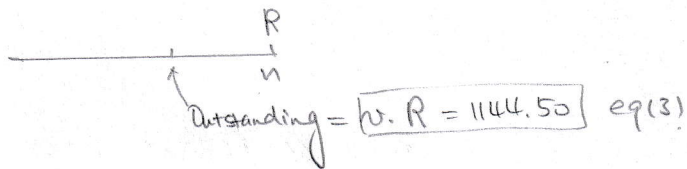 R
n
Outstanding = v. R = 1144.50 eq(3)